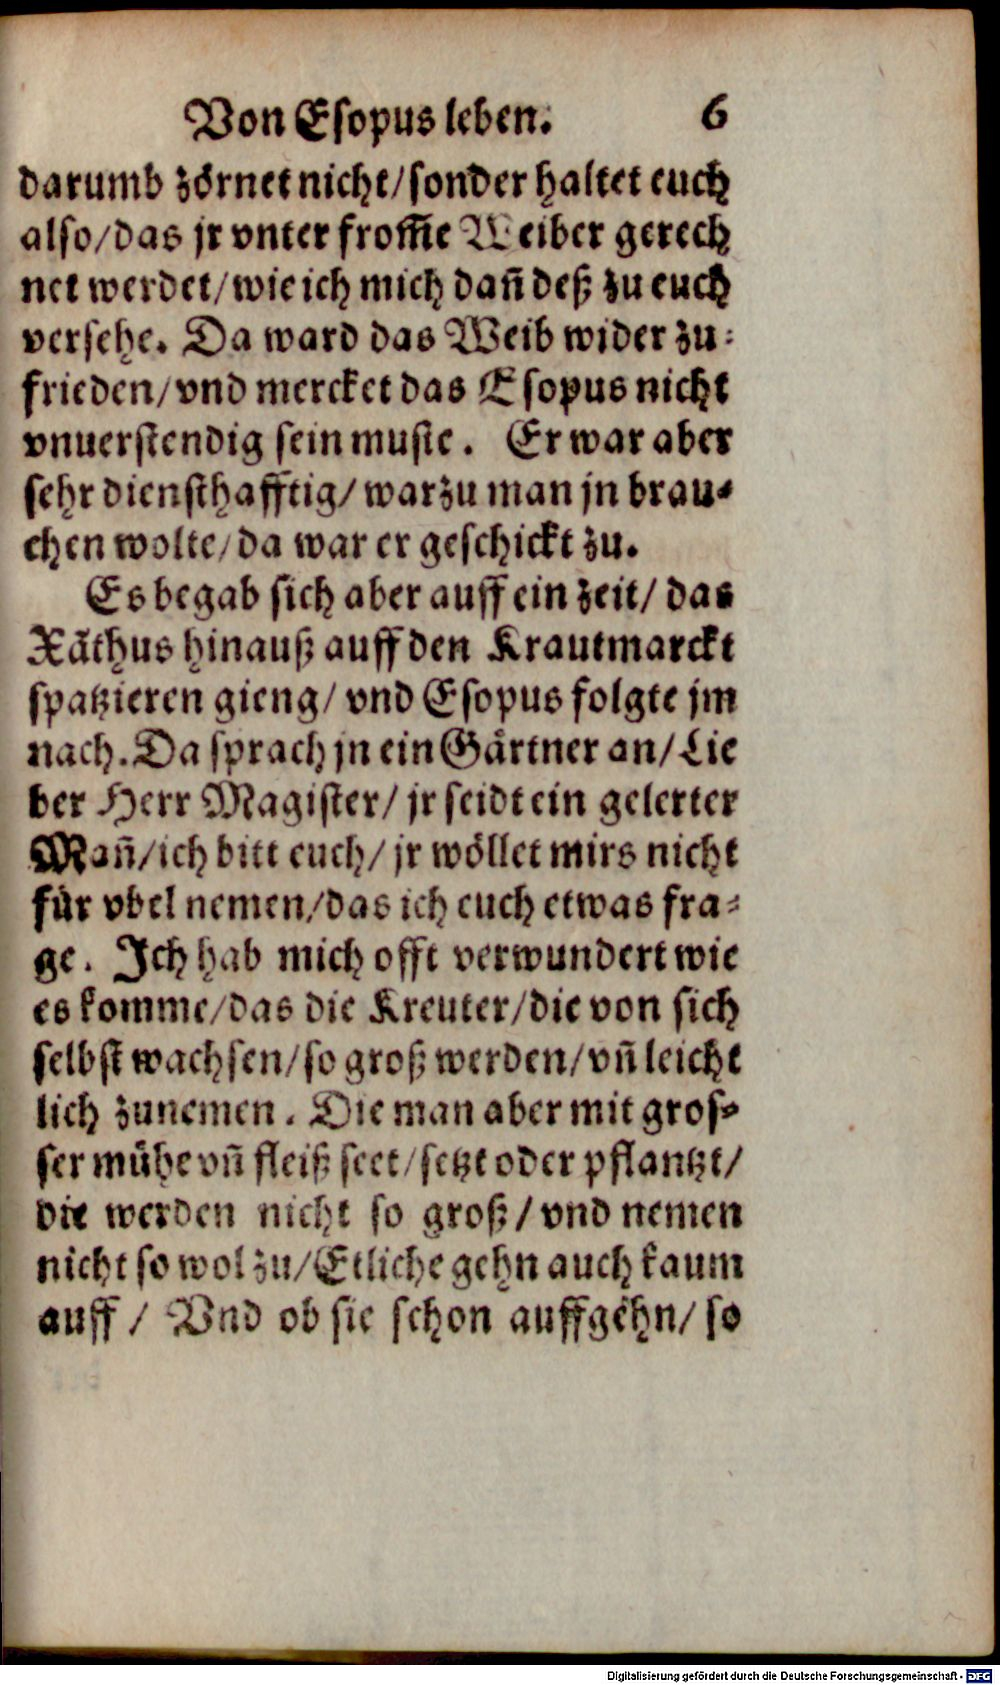 Von Esopus leben. 6
darumb zörnet nicht/sonder haltet euch
also/das jr vnter from̃e Weiber gerech
net werdet/wie ich mich dañ deß zu euch
versehe. Da ward das Weib wider zu-
frieden/vnd mercket das Esopus nicht
vnuerstendig sein muste. Er war aber
sehr diensthafftig/warzu man jn brau-
chen wolte/da war er geschickt zu.
Es begab sich aber auff ein zeit/das
Xãthus hinauß auff den Krautmarckt
spatzieren gieng/vnd Esopus folgte jm
nach. Da sprach jn ein Gärtner an/Lie
ber Herr Magister/jr seidt ein gelerter
Mañ/ich bitt euch/jr wöllet mirs nicht
für vbel nemen/das ich euch etwas fra-
ge. Ich hab mich offt verwundert wie
es komme/das die Kreuter/die von sich
selbst wachsen/so groß werden/vñ leicht
lich zunemen. Die man aber mit gros-
ser mühe vñ fleiß seet/setzt oder pflantzt/
die werden nicht so groß/vnd nemen
nicht so wol zu/Etliche gehn auch kaum
auff/Vnd ob sie schon auffgehn/so
Digitalisierung gefördert durch die Deutsche Forschungsgemeinschaft - DFG